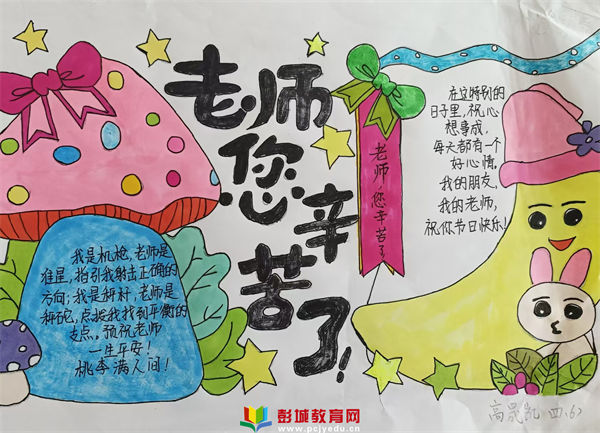 老师
您
辛
苦
了!
老师,您辛苦了
在这特别的
日子里,祝心
想事成,
每天都有一个
好心情。
我的朋友,
我的老师,
祝你节日快乐!
我是机枪,老师是
准星,指引我射击正确的
方向;我是秤杆,老师是
秤砣,点拨我找到平衡的
支点。预祝老师
一生平安!
桃李满人间!
彭城教育网
www.pcjyedu.cn
高晟凯 四.6)